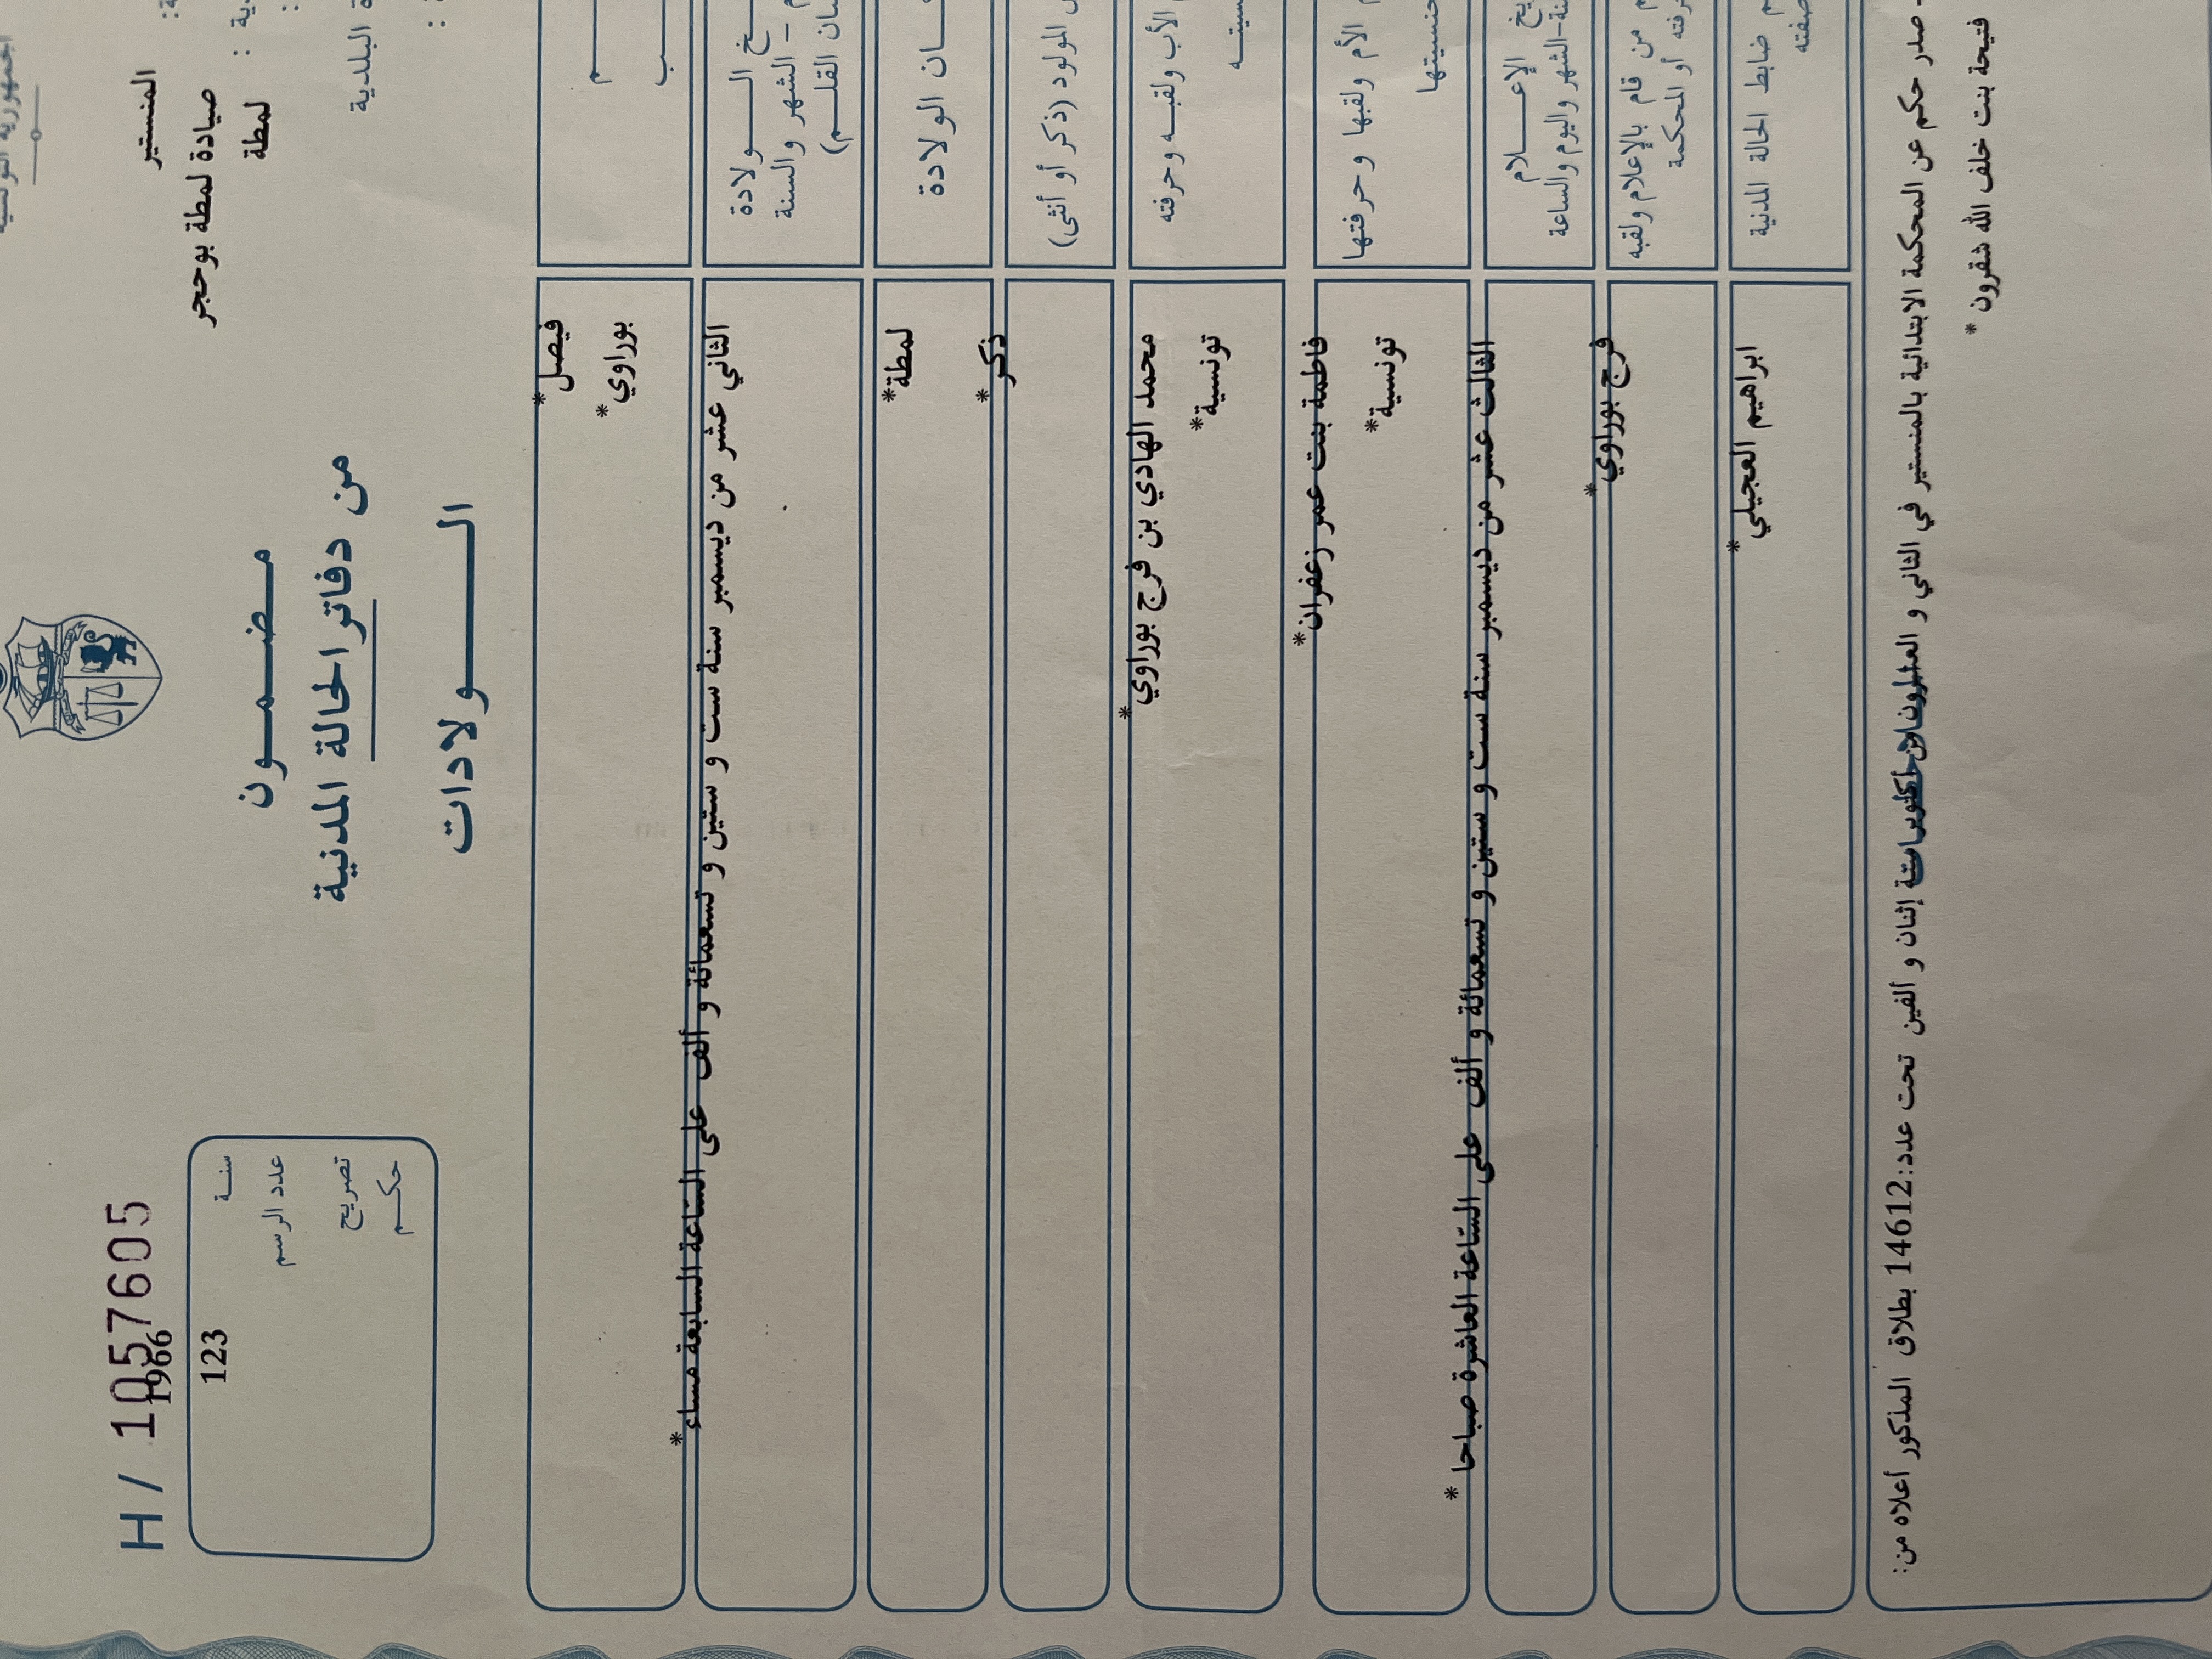 الجمهورية التونسية
H / 1057605
المنستير
1966
سنة
صيادة لمطة بوحجر
123
عدد الرسم
لمطة
مضمون
تصريح
من دفاتر الحالة المدنية
حكم
البلدية
الولادات
فيصل *
بوراوي *
الثاني عشر من ديسمبر سنة ست و ستين و تسعمائة و ألف على الساعة السابعة مساء *
الولادة
الشهر والسنة
القلم)
لمطة *
الولادة
ذكر *
المولود (ذكر أو أنثى)
محمد الهادي بن فرج بوراوي *
الأب ولقبه وحرفته
تونسية *
فاطمة بنت عمر زعفران *
الأم ولقبها وحرفتها
تونسية *
جنسيتها
الثالث عشر من ديسمبر سنة ست و ستين و تسعمائة و ألف على الساعة العاشرة صباحا *
الإعلام
الشهر واليوم والساعة
فرج بوراوي *
من قام بالإعلام ولقبه
أو المحكمة
ابراهيم العجيلي *
ضابط الحالة المدنية
صفته
- صدر حكم عن المحكمة الابتدائية بالمنستير في الثاني و العشرون من أكتوبر سنة إثنان و ألفين تحت عدد:14612 بطلاق المذكور أعلاه من:
فتيحة بنت خلف الله شقرون *